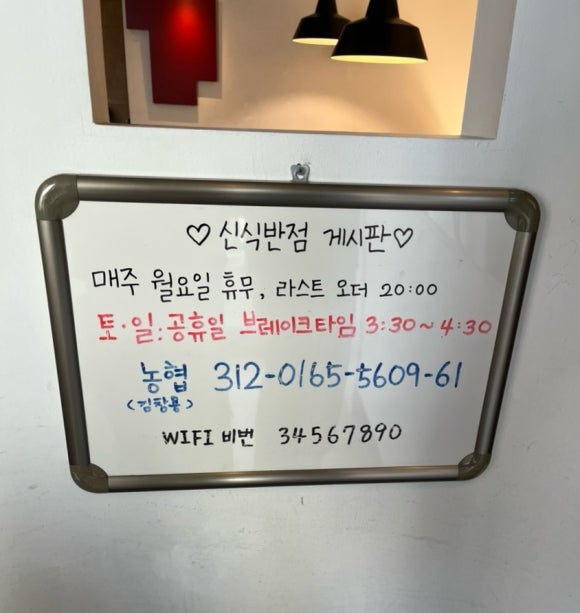 ♡신식반점 게시판♡
매주 월요일 휴무, 라스트 오더 20:00
토·일·공휴일 브레이크타임 3:30~4:30
농협 312-0165-5609-61
(김창용)
WIFI 비번 34567890